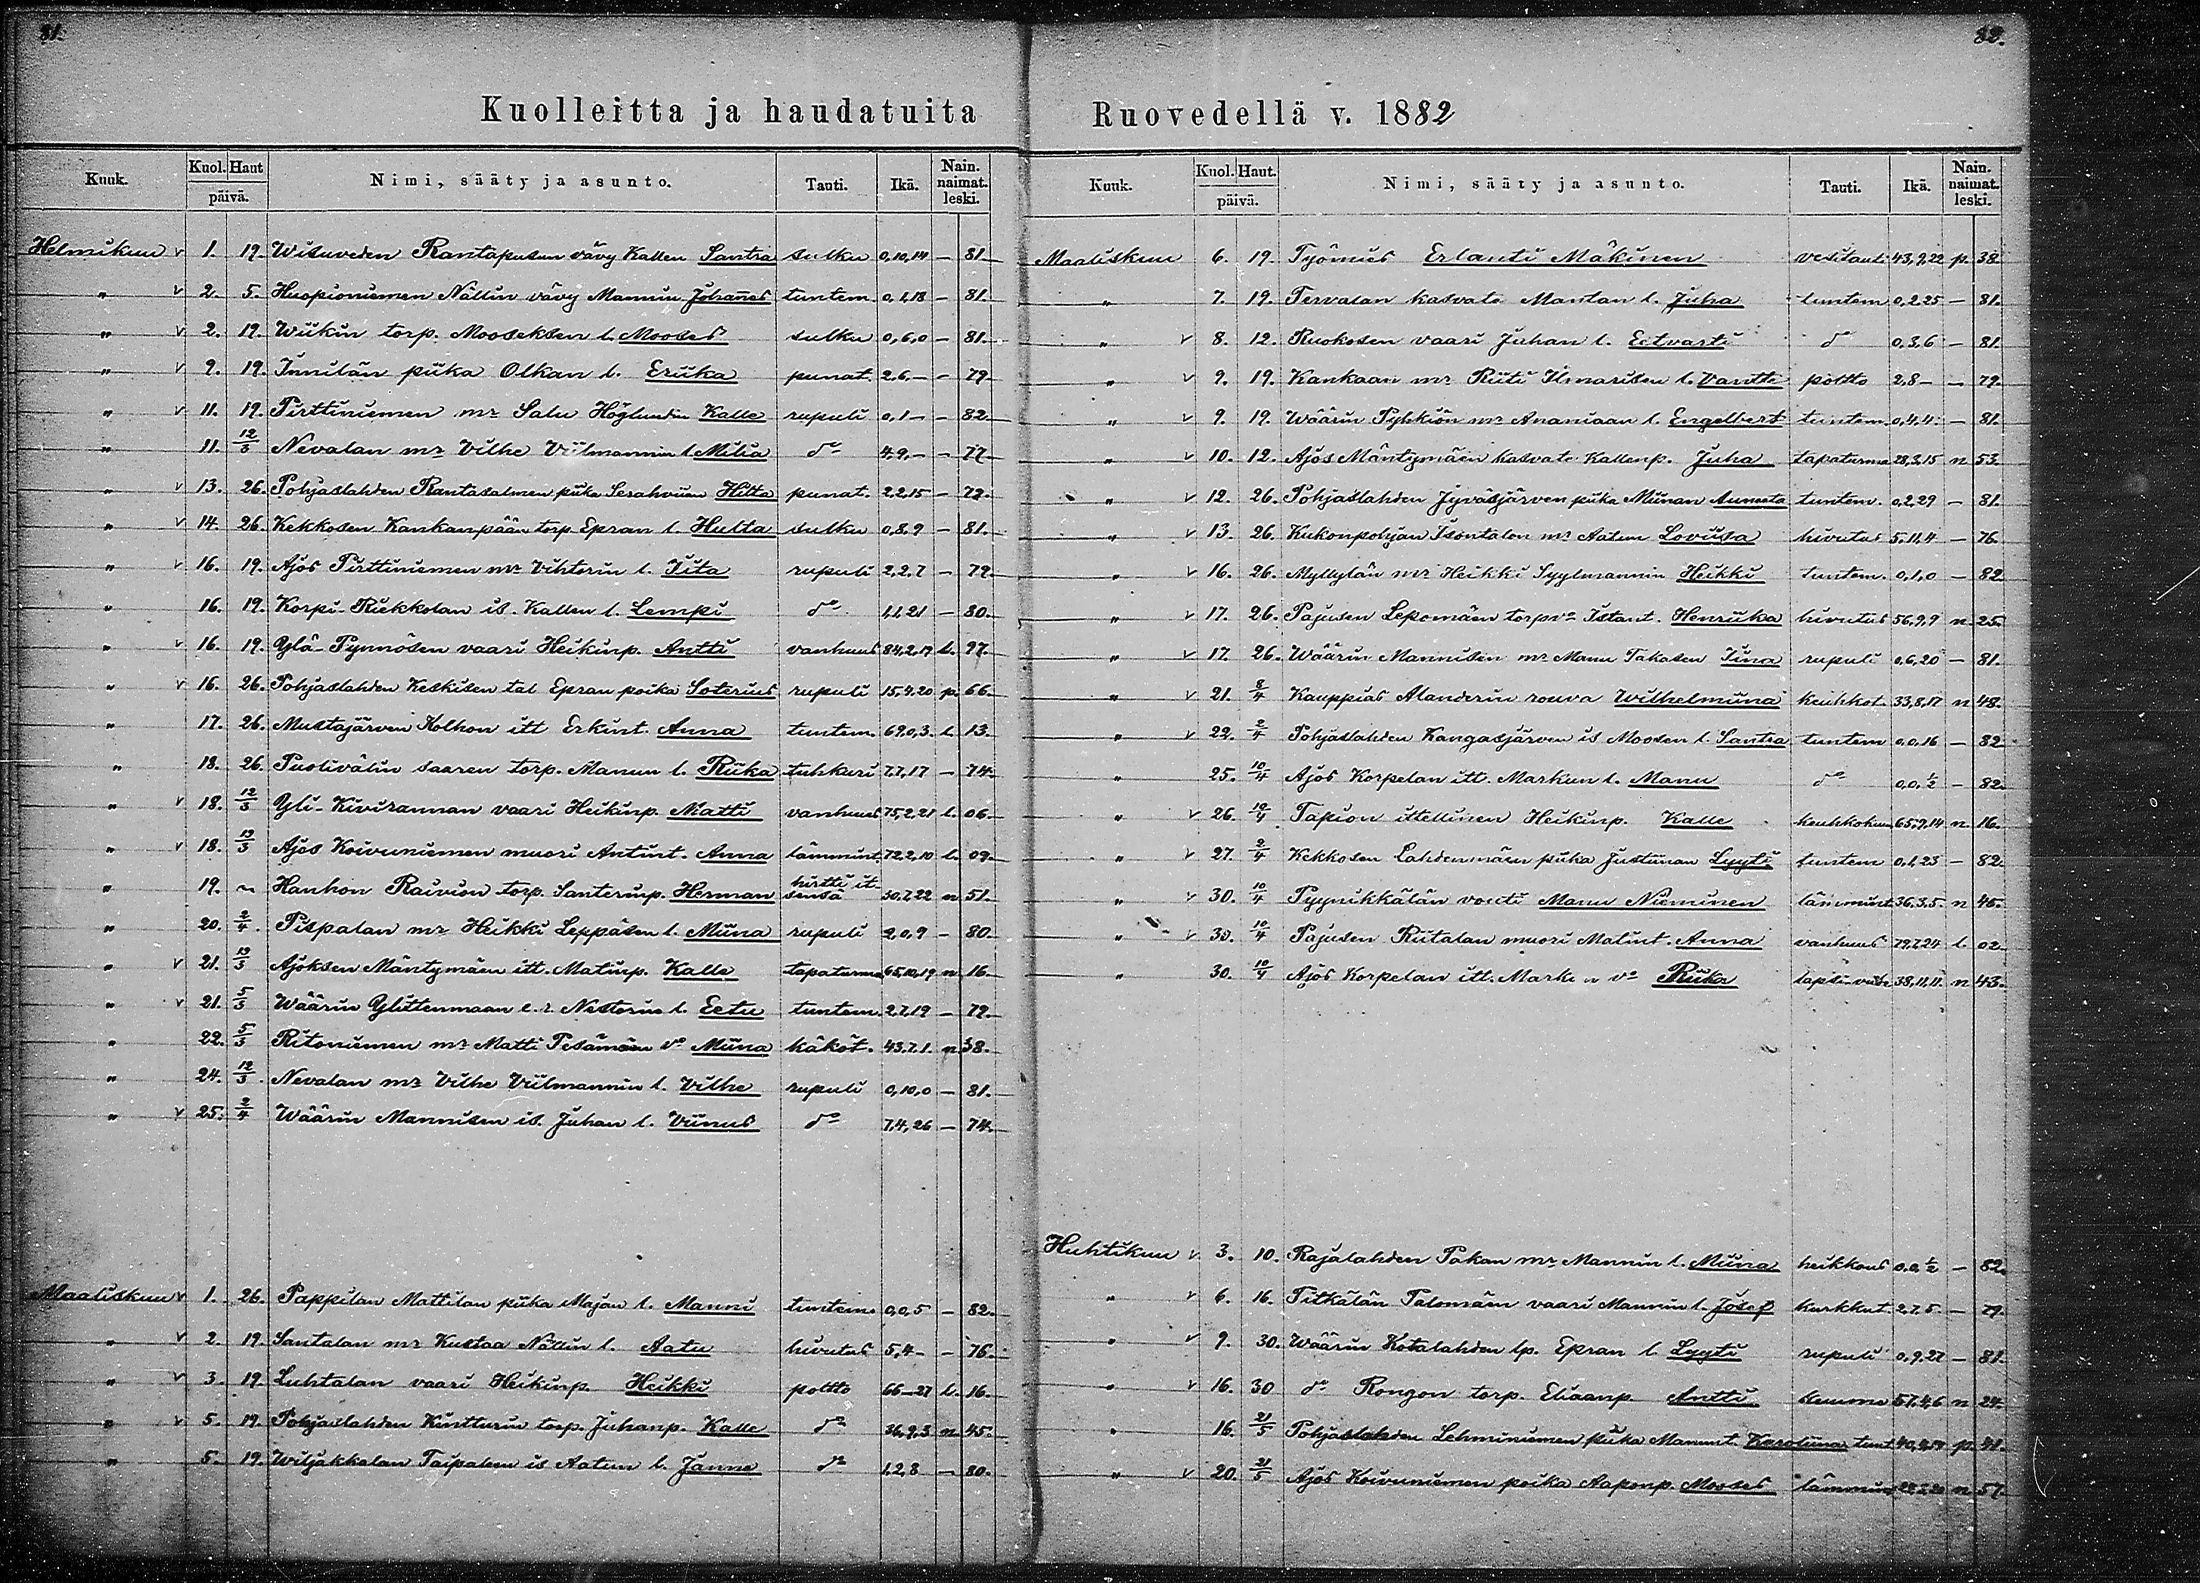 81.
82.
Kuolleitta ja haudatuita Ruovedellä v. 1882
Kuuk. Kuol. Haut päivä. Nimi, sääty ja asunto. Tauti. Ikä. Nain. naimat. leski.
Helmikuu v 1. 19. Wisuveden Rantapusun vävy Kallen Santra sulku 0,10,14 — 81.
" v 2. 5. Huopioniemen Nällin vävy Mannin Johañes tuntem. 0,1,18 — 81.
" v 2. 19. Wiikin torp. Mooseksen l. Mooses sulku 0,6,0 — 81.
" v 9. 19. Innilän piika Olkan l. Eriika punat. 2,6,— — 79.
" v 11. 19. Pirttiniemen mr Salu Höglundin Kalle rupuli 0,1— — 82.
" 11. 12/3 Nevalan mr Vilhe Viilmannin l Milia do 4,9,— — 77
" v 13. 26. Pohjaslahden Rantasalmen piika Serahviian Hilta punat. 2,2,15 — 79.
" v 14. 26. Kekkosen Kankanpään torp. Epran l. Hulta sulku 0,8,9 — 81.
" v 16. 19. Ajos Pirttiniemen mr Vihtorin l. Iita rupuli 2,2,7 — 79.
" 16. 19. Korpi-Riekkolan is. Kallen l. Lempi do 1,1,21 — 80.
" v 16. 19. Ylä-Pynnösen vaari Heikinp. Antti vanhuus 84,2,19 l. 97.
" v 16. 26. Pohjaslahden Keskisen tal Epran poika Soterius rupuli 15,4,20 p. 66.
" 17. 26. Mustajärven Kolhon itt Erkint. Anna tuntem. 69,0,3. l. 13.
" 18. 26. Puolivälin saaren torp. Manun l. Riika tuhkuri 7,7,17 — 74.
" v 18. 12/3 Yli-Kivirannan vaari Heikinp. Matti vanhuus 75,2,21 l. 06.
" v 18. 19/3 Ajos Koivuniemen muori Antint. Anna lämmint. 72,2,10 l. 09.
" 19. ~ Hanhon Raivion torp. Santerinp. Herman hirtti itsensä 30,7,22 n 51.
" 20. 2/4. Pispalan mr Heikki Leppäsen l. Miina rupuli 2,0,9 — 80.
" v 21. 19/3 Ajoksen Mäntymäen itt. Matinp. Kalle tapaturma 65,10,19 n 16.
" v 21. 5/3 Wäärin Ylittenmaan e. r. Nestorin l. Eetu tuntem. 2,7,19 — 79.
" 22. 5/3 Ritoniemen mr Matti Pesämäen vo Miina käköt. 43,7,1. n 38.
" 24. 12/3. Nevalan mr Vilhe Viilmannin l. Vilhe rupuli 0,10,0 — 81.
" v 25. 2/4 Wäärin Mannisen is. Juhan l. Viinus do 7,4,26 — 74.
Maaliskuu v 1. 26. Pappilan Mattilan piika Majan l. Manni tuntem. 0,0,5 — 82.
" v 2. 19. Santalan mr Kustaa Nällin l. Aatu hivutus 5,4— — 76.
" v 3. 19. Luhtalan vaari Heikinp. Heikki poltto 66—27 l. 16.
" v 5. 19. Pohjaslahden Kintturin torp. Juhanp. Kalle do 36,9,3 n 45.
" 5. 19. Wiljakkalan Taipaleen is Aatun l. Janne do 1,2,8 — 80.
Kuuk. Kuol. Haut. päivä. Nimi, sääty ja asunto. Tauti. Ikä. Nain. naimat. leski.
Maaliskuu 6. 19. Työmies Erlanti Mäkinen vesitauti 43,9,22 p. 38.
" 7. 19. Tervalan kasvate Mantan l. Juha tuntem 0,2,25 — 81.
" v 8. 12. Ruokosen vaari Juhan l. Eetvarti do 0,3,6 — 81.
" v 9. 19. Kankaan mr Riiti Ilmarisen l. Vantti poltto 2,8— — 79.
" v 9. 19. Wäärin Pyhkiön mr Ananiaan l. Engelbert tuntem. 0,4,4. — 81.
" v 10. 12. Ajos Mäntymäen kasvate Kallenp. Juha tapaturma 28,3,15 n 53.
" v 12. 26. Pohjaslahden Jyväsjärven piika Miinan Anneeta tuntem. 0,2,29 — 81.
" v 13. 26. Kukonpohjan Isontalon mr Aatun Loviisa hivutus 5,11,4 — 76.
" v 16. 26. Myllylän mr Heikki Syylmannin Heikki tuntem. 0,1,0 — 82.
" v 17. 26. Pajusen Lepomäen torpvo Istant. Henriika hivutus 56,9,9 n. 25.
" v 17. 26. Wäärin Mannisen mr Manu Takasen Iina rupuli 0,6,20 — 81.
" v 21. 8/4 Kauppias Alanderin rouva Wilhelmiina keuhkot. 33,8,17 n 48.
" v 22. 2/4 Pohjaslahden Kangasjärven is Moosen l. Santra tuntem 0,0,16 — 82
" 25. 10/4 Ajos Korpelan itt. Markun l. Manu do 0,0,1/2 — 82.
" v 26. 10/4 Tapion ittellinen Heikinp. Kalle keuhkokuu 65,9,14 n. 16.
" v 27. 2/4 Kekkosen Lahdenmäen piika Justiinan Lyyti tuntem 0,1,23 — 82.
" v 30. 10/4 Pyynikkälän vouti Manu Nieminen lämmint 36,3,5. n 45.
" v 30. 10/4 Pajusen Riitalan muori Matint. Anna vanhuus 79,7,24 l. 02.
" 30. 10/4 Ajos Korpelan itt. Markun vo Riika lapsi-vuode 38,11,11. n 43.
Huhtikuu v 3. 10. Rajalahden Pakan mr Mannin l. Miina heikkous 0,0,1/2 — 82.
" v 6. 16. Pitkälän Talomäen vaari Mannin l. Josef kurkkut. 2,7,5 — 79.
" v 9. 30. Wäärin Kotalahden lp. Epran l. Lyyti rupuli 0,9,27 — 81.
" v 16. 30 do Rongon torp. Eliaanp Antti 57,4,6 n 24.
" 16. 21/5 Pohjaslahden Lehminiemen piika Manunt. Karoliina tunt p. 41.
" v 20. 21/5 Ajos Koivuniemen poika Aaponp. Mooses lämmin n 57